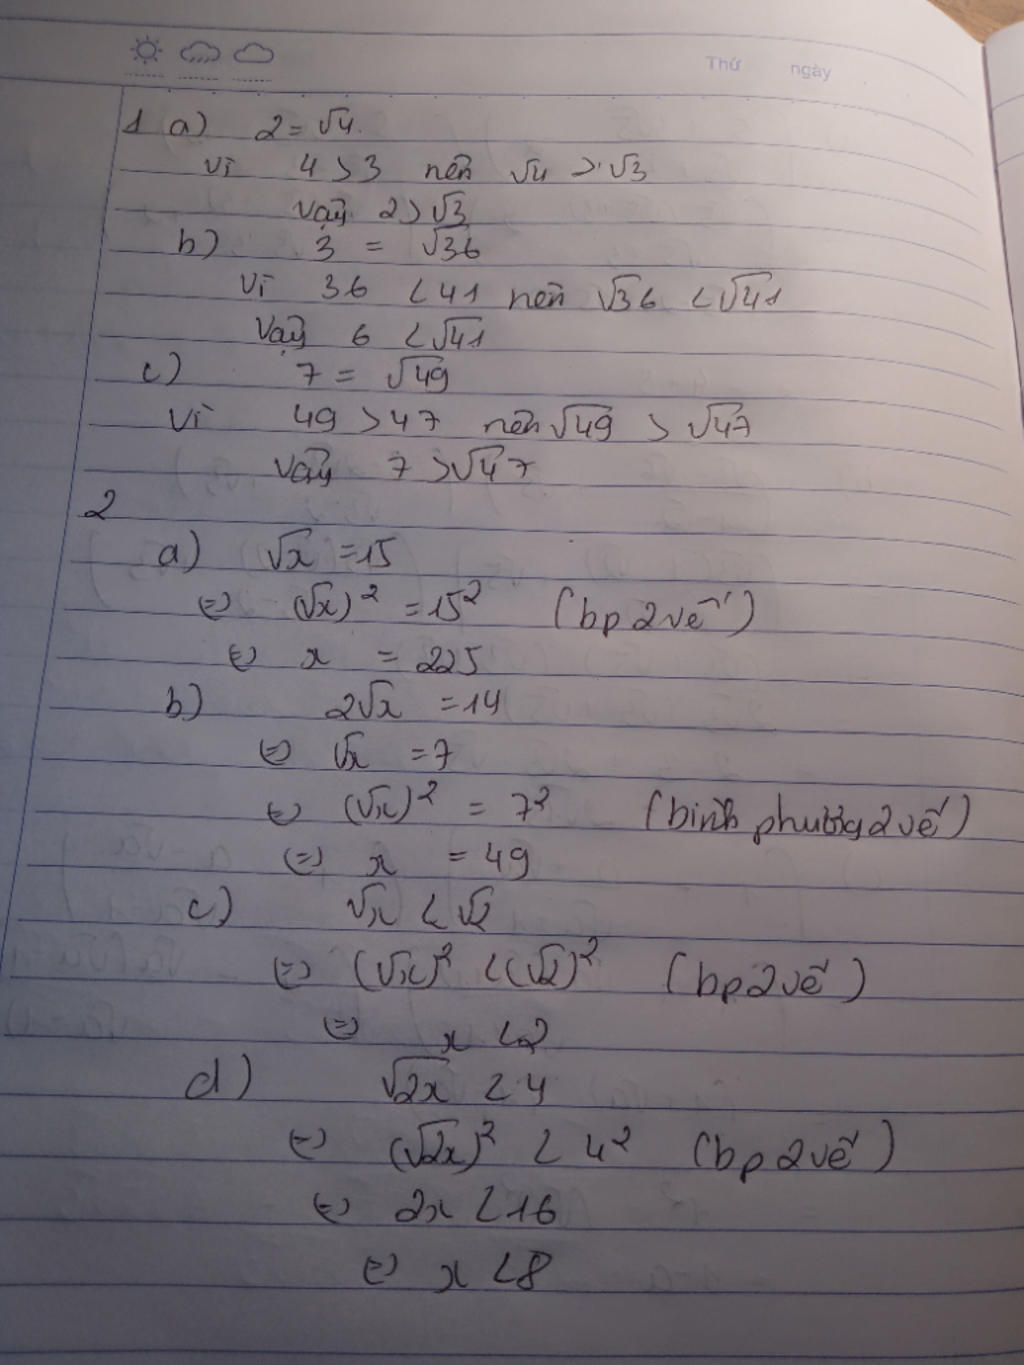 Thứ ngày
1 a) 2 = √4.
Vì 4 > 3 nên √4 > √3
Vậy 2 > √3
b) 3 = √36
Vì 36 < 41 nên √36 < √41
Vậy 6 < √41
c) 7 = √49
Vì 49 > 47 nên √49 > √47
Vậy 7 > √47
2
a) √x = 15
⇔ (√x)² = 15² (bp 2 vế)
⇔ x = 225
b) 2√x = 14
⇔ √x = 7
⇔ (√x)² = 7² (bình phương 2 vế)
⇔ x = 49
c) √x < √2
⇔ (√x)² < (√2)² (bp 2 vế)
⇔ x < 2
d) √2x < 4
⇔ (√2x)² < 4² (bp 2 vế)
⇔ 2x < 16
⇔ x < 8